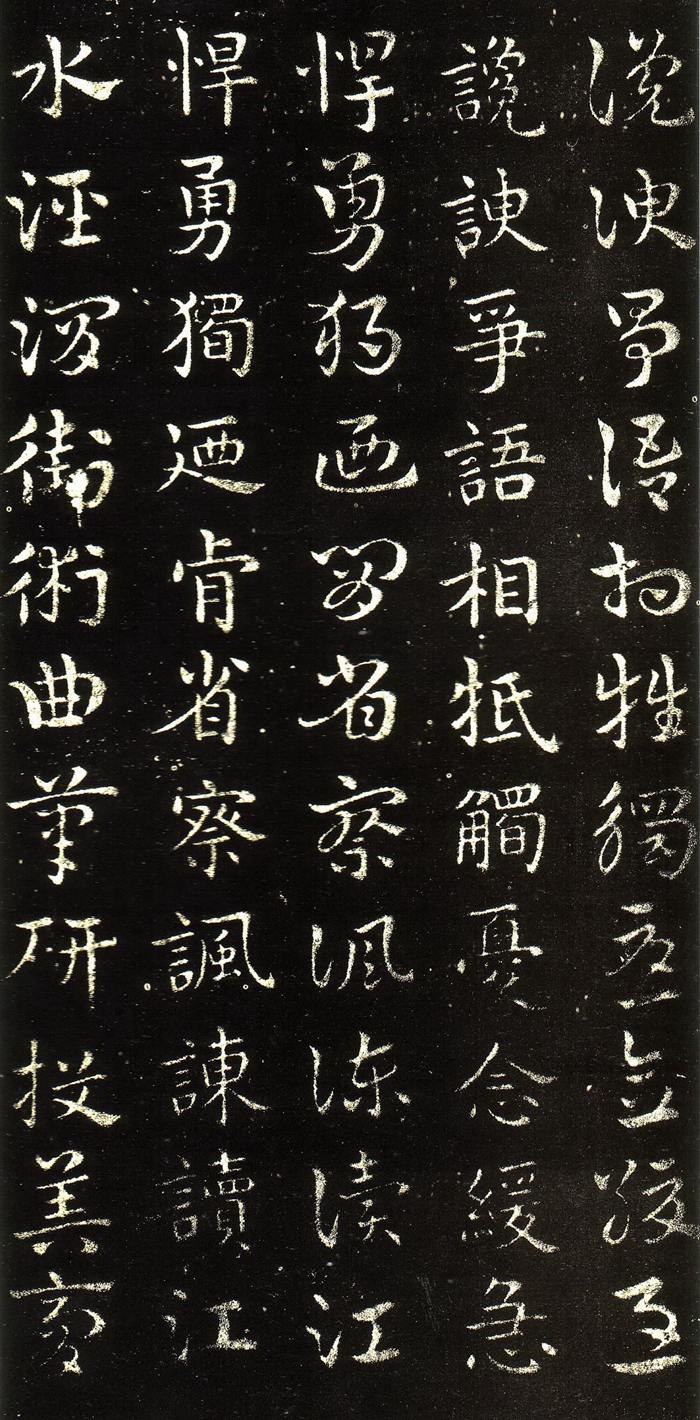 讒諛爭語相牴觸憂念緩急
讒諛爭語相牴觸憂念緩急
悍勇獨廼肯省察諷諫讀江
悍勇獨廼肯省察諷諫讀江
水涇渭街術曲筆研投筭膏